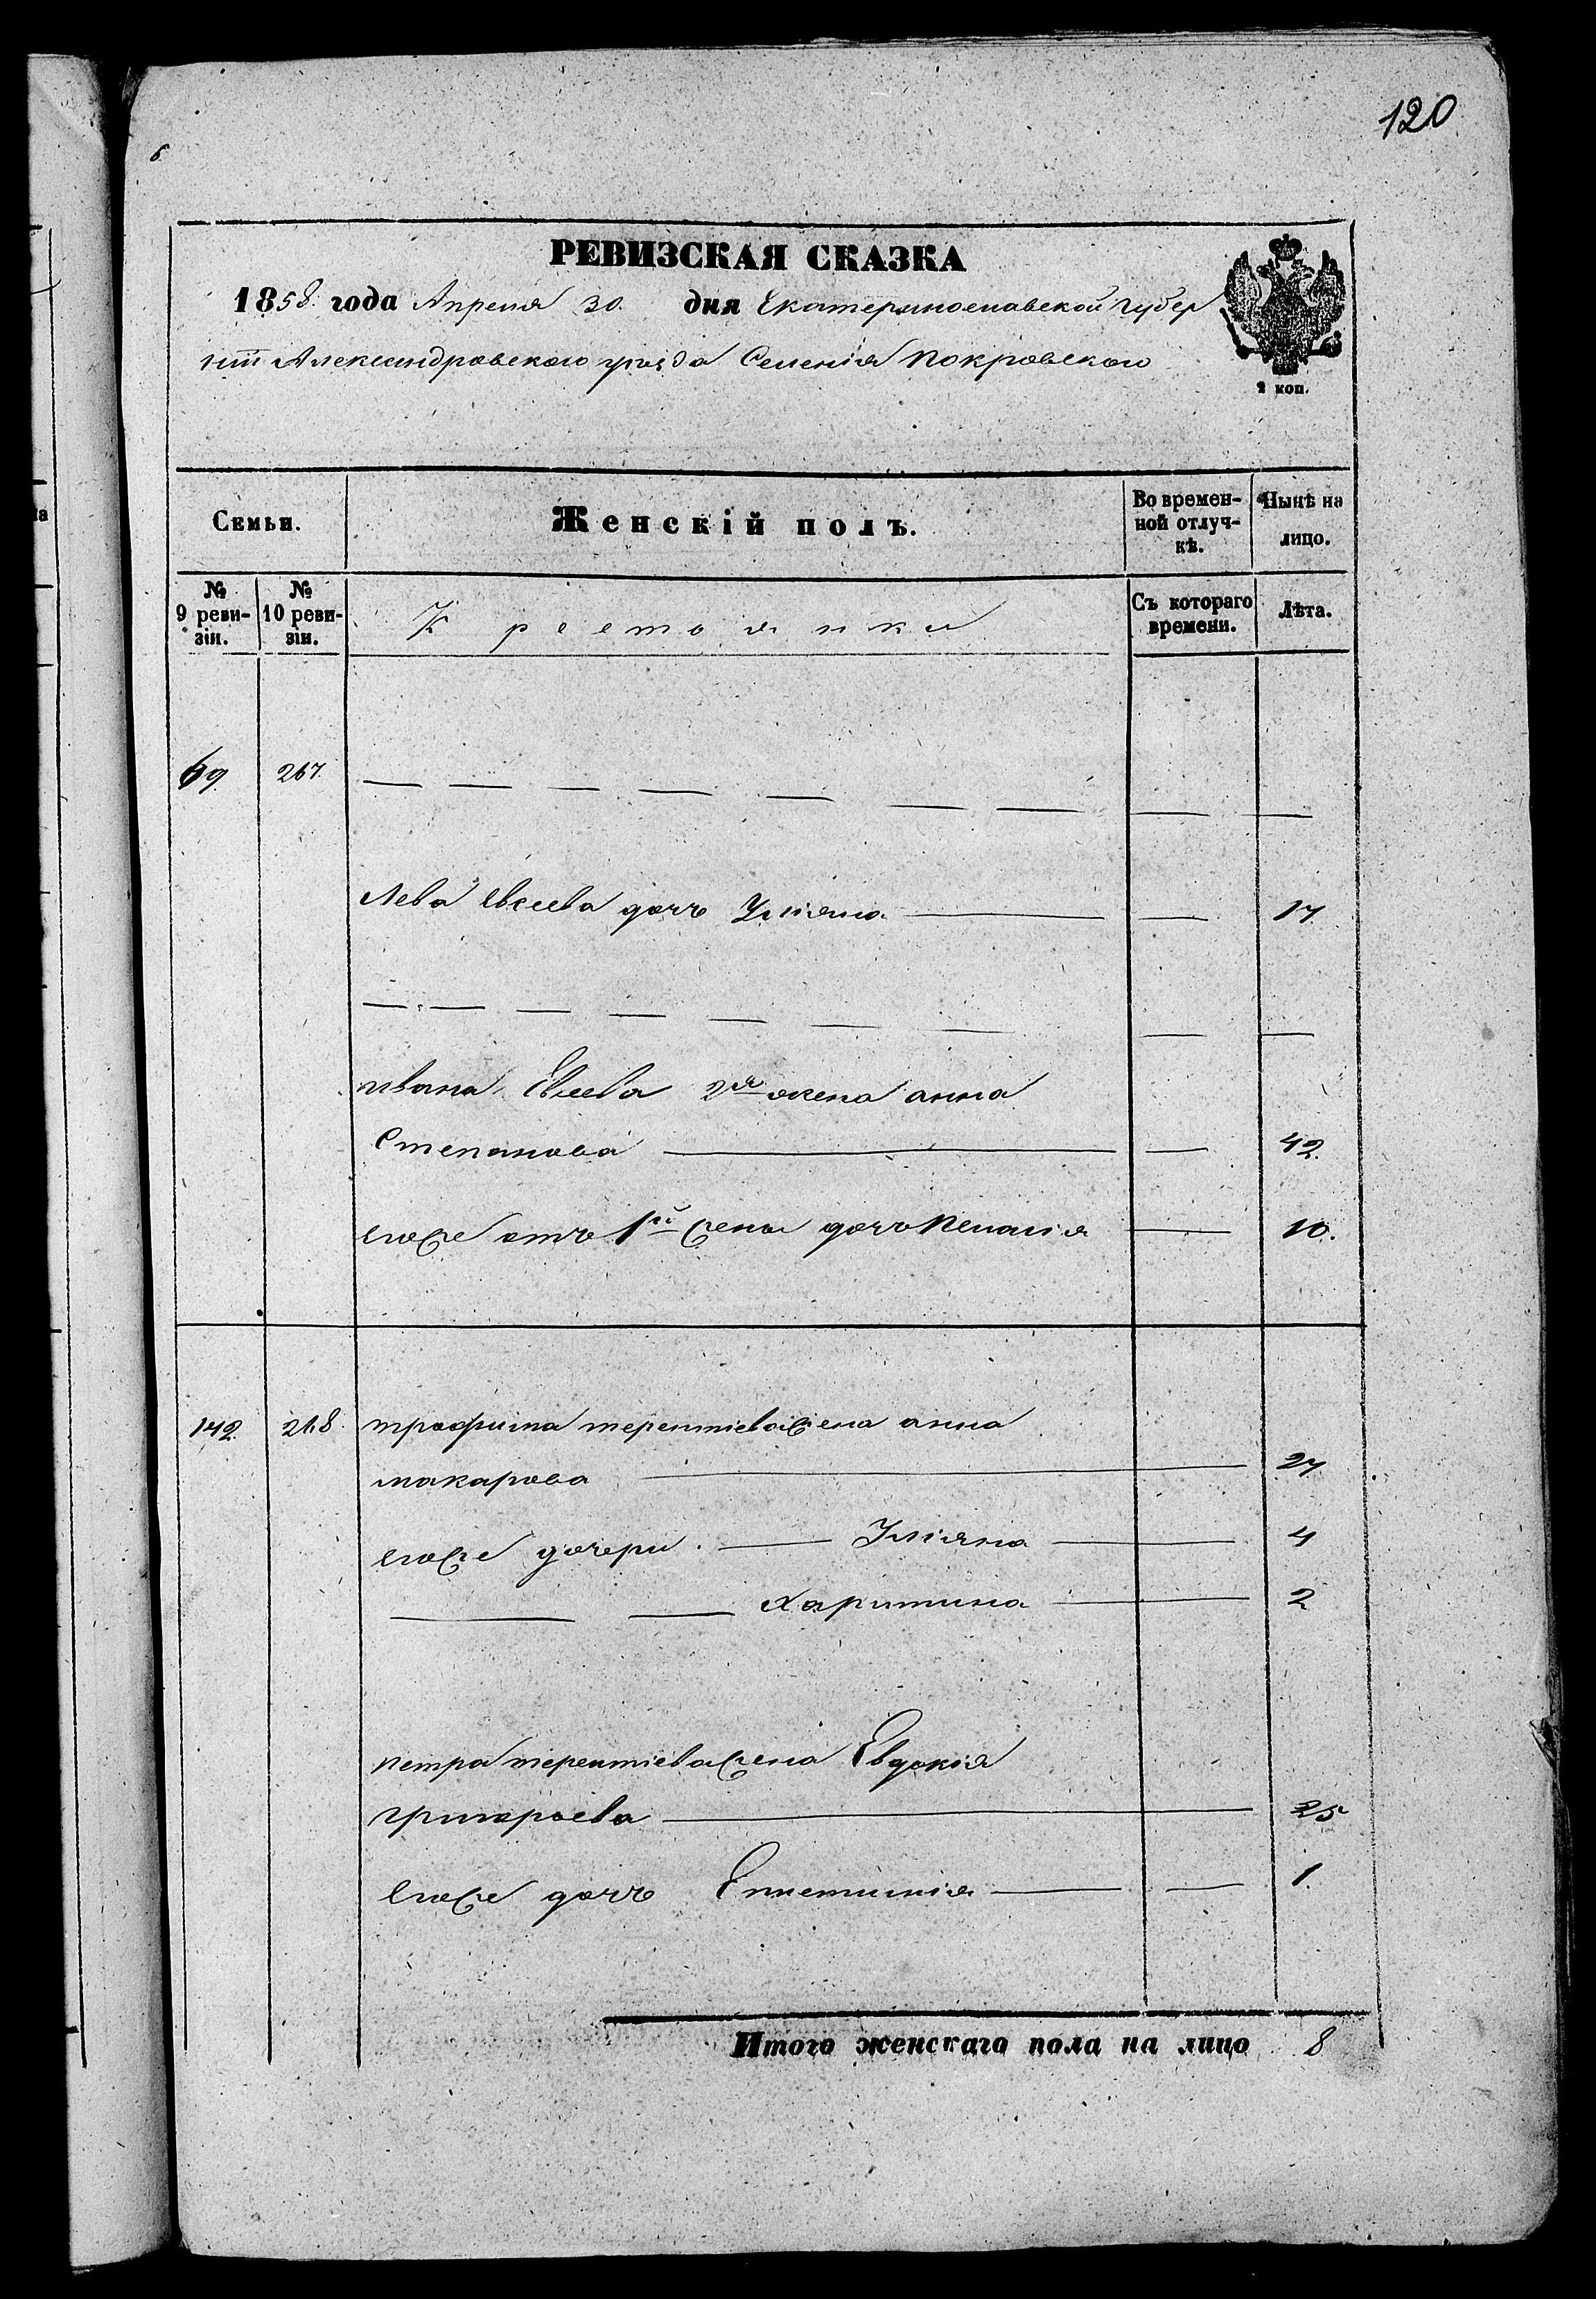 120
РЕВИЗСКАЯ СКАЗКА
1858 года Апреля 30. дня Екатеринославской Губер
нїи Александровского уезда Селенія Покровского
2 коп.
Семьи.
Женскій полъ.
Во времен-
ной отлуч-
кѣ.
Нынѣ на
лицо.
№
9 реви-
зіи.
№
10 реви-
зіи.
Крестоянки
Съ котораго
времени.
Лѣта.
69. 267. — — — — — — — — —
Лева Евсеева дочъ Уліяна — — 17.
— — — — — — — — —
ивана Евсеева 2я жена анна
Степанова — — 42.
егоже отъ 1й жены дочъ Пелагія — 10.
142. 268. трофима терентіева жена анна
макарова — 27
егоже дочери. — Уліяна — 4
— — Харитина — 2
петра терентіева жена Евдокія
григорьева — 25
Егоже дочъ Епистимія — — 1.
Итого женскаго пола на лицо 8